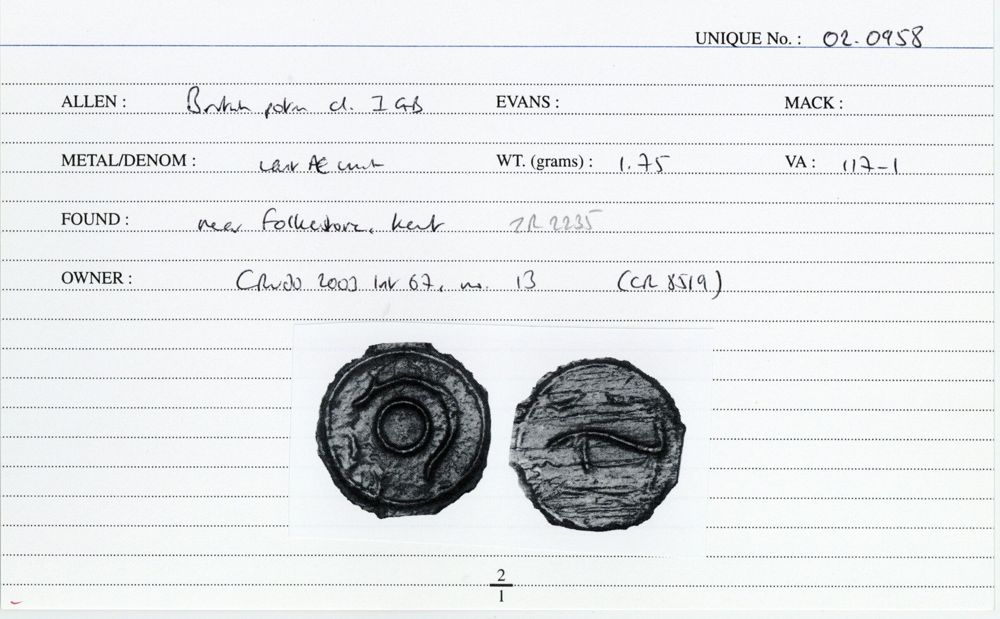 UNIQUE No. : 02-0958
ALLEN : British potin cl. I EVANS : MACK :
METAL/DENOM : cast Æ unit WT. (grams) : 1.75 VA : 117-1
FOUND : near Folkestone, Kent
OWNER : 2003 list 67, no. 13 (CR 8519)
2
1